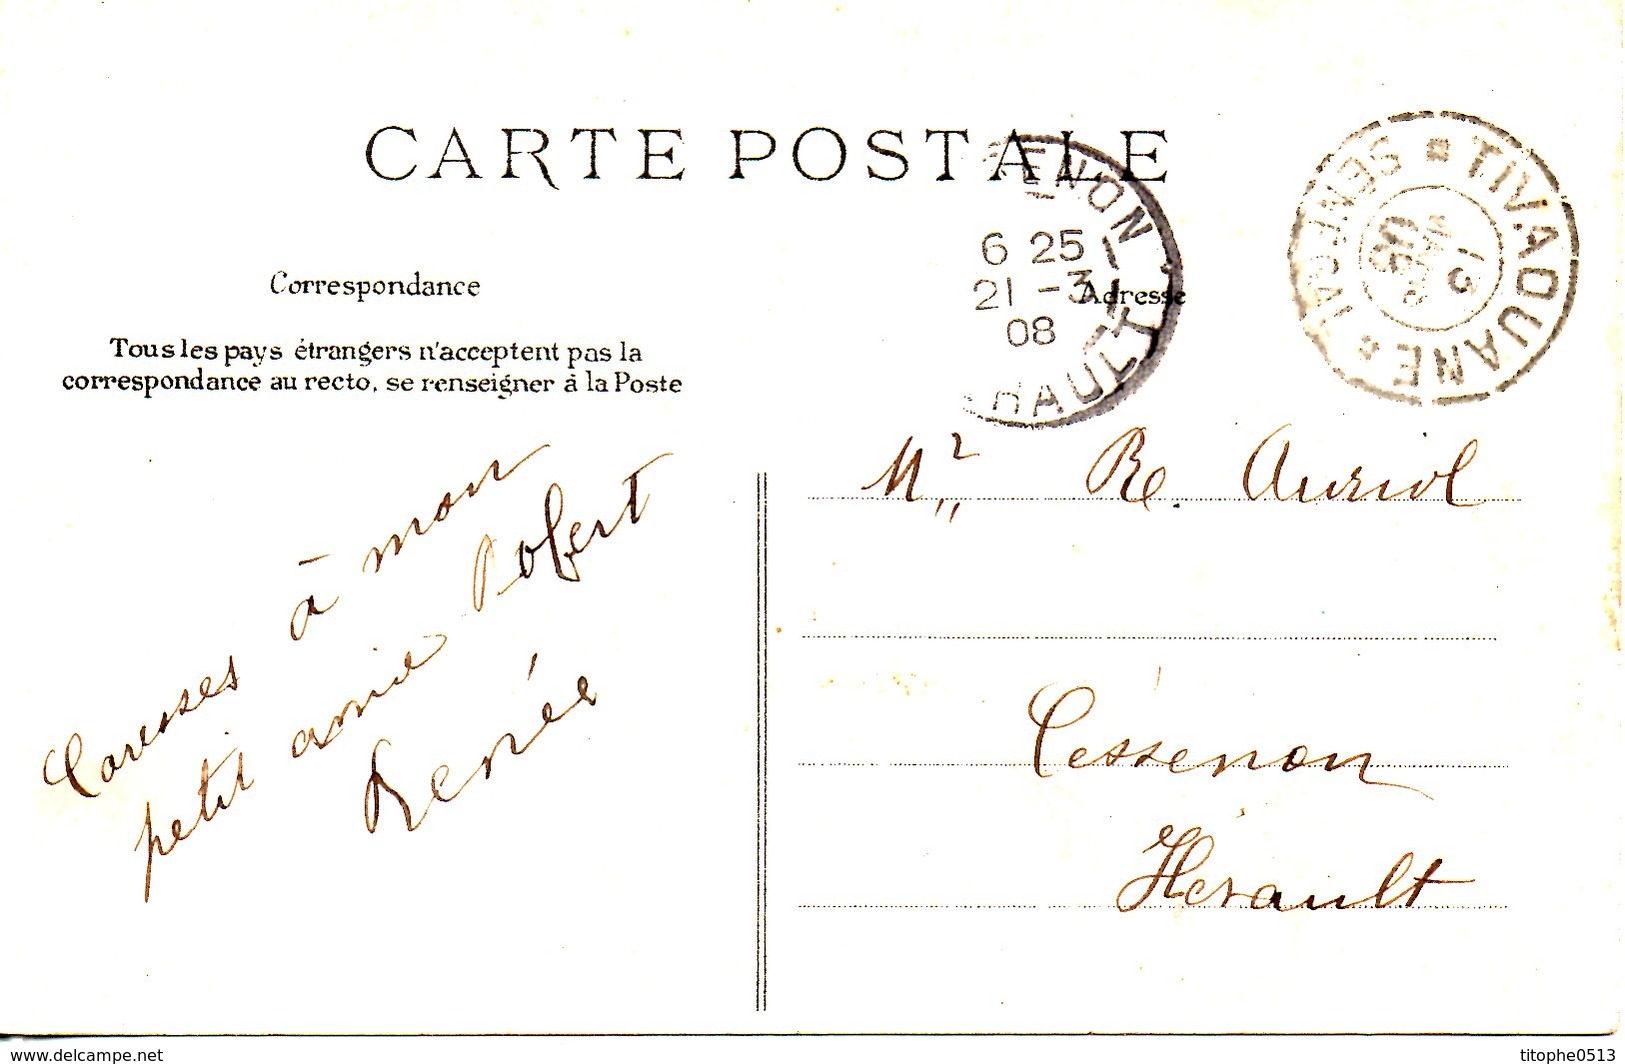 CARTE POSTALE
ENON
6 25
21 -3
08
HAULT
SENEGAL * TIVAOUANE *
13
MARS
08
Correspondance
Adresse
Tous les pays étrangers n'acceptent pas la
correspondance au recto, se renseigner à la Poste
Caresses à mon
petit amie Robert
Renée
Mr R. Auriol
Cessenon
Hérault
www.delcampe.net
titophe0513